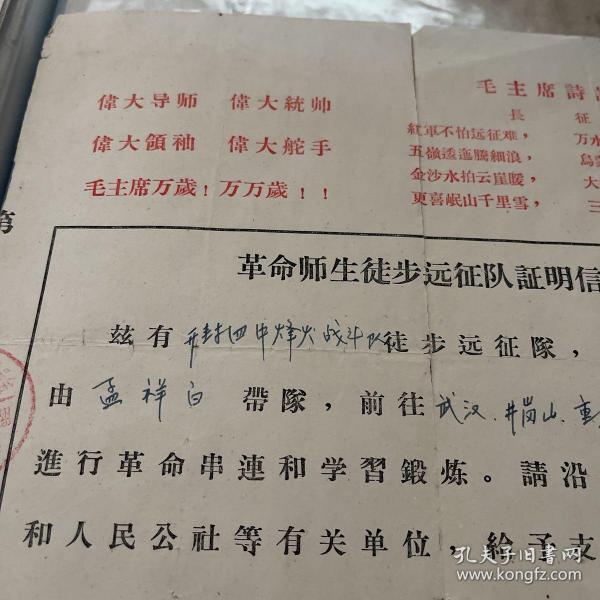 偉大导师 偉大統帅
偉大領袖 偉大舵手
毛主席万歲！万万歲！！
毛主席詩
長征
紅軍不怕远征难，万水
五嶺逶迤騰細浪，烏
金沙水拍云崖暖，大
更喜岷山千里雪，三
第
革命师生徒步远征队証明信
茲有开封四中烽火战斗队徒步远征隊，
由孟祥白帶隊，前往武汉、井岗山、重
進行革命串連和学習鍛炼。請沿
和人民公社等有关单位，給予支
孔夫子旧書网
www.kongfz.com